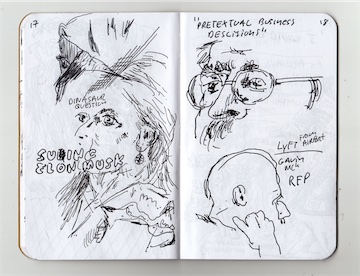 17
DINASAUR
QUESTION
SUEING
ELON MUSK
18
"PRETEXTUAL BUSINESS
DESCISIONS"
LYFT FROM AIRPORT
GAVIN
RFP